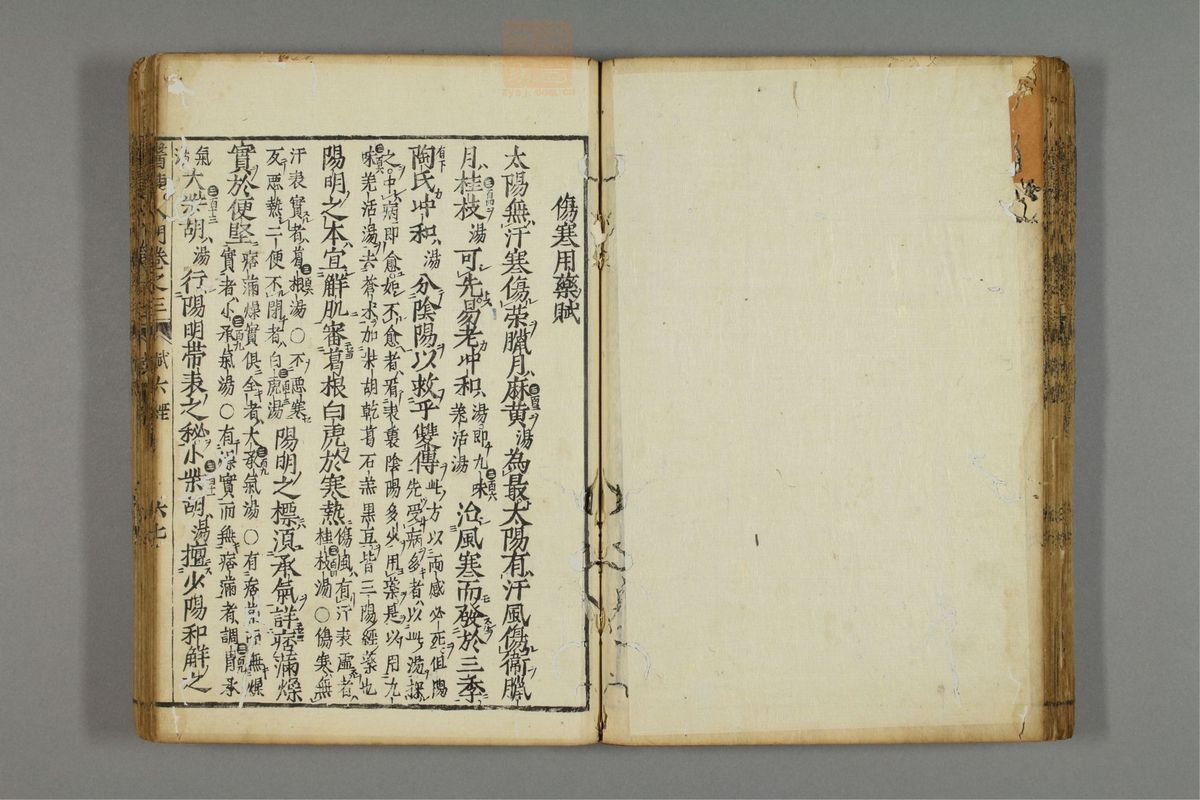 傷寒用藥賦
太陽無汗寒傷榮臘月麻黃湯為最太陽有汗風傷衛臘
月桂枝湯可先易老冲和湯即九味羌活湯治風寒而發於三季
陶氏冲和湯分陰陽以救乎雙傳此方以兩感必死但陽先受病多者以此湯探
之中病即愈如不愈者看表裏陰陽多少用藥是以用九味羌活湯去蒼朮加柴胡乾葛石羔黑豆皆三陽經藥也
陽明之本宜解肌審葛根白虎於寒熱傷風有汗表虛者桂枝湯○傷寒無
汗表實者葛根湯○不惡寒反惡熱二便不閉者白虎湯陽明之標須承氣詳痞滿燥
實於便堅痞滿燥實俱全者大承氣湯○有痞滿而無燥實者小承氣湯○有燥實而無痞滿者調胃承
氣湯大柴胡湯行陽明帶表之秘小柴胡湯擅少陽和解之
入門卷之三
賦六經
六七